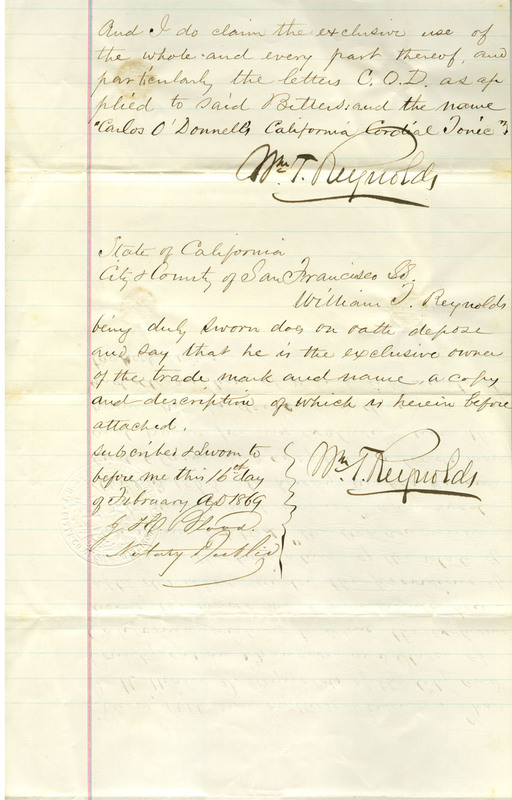 And I do claim the exclusive use of
the whole and every part thereof, and
particularly the letters C.O.D. as ap
plied to said Bitters: and the name
"Carlos O'Donnell's California Cordial Tonic"
Wm. T. Reynolds
State of California
City & County of San Francisco SS
William T. Reynolds
being duly sworn does on oath depose
and say that he is the exclusive owner
of the trade mark and name, a copy
and description of which is herein before
attached.
Subscribed & Sworn to
before me this 16th day
of February AD 1869
Wm. T. Reynolds
Notary Public